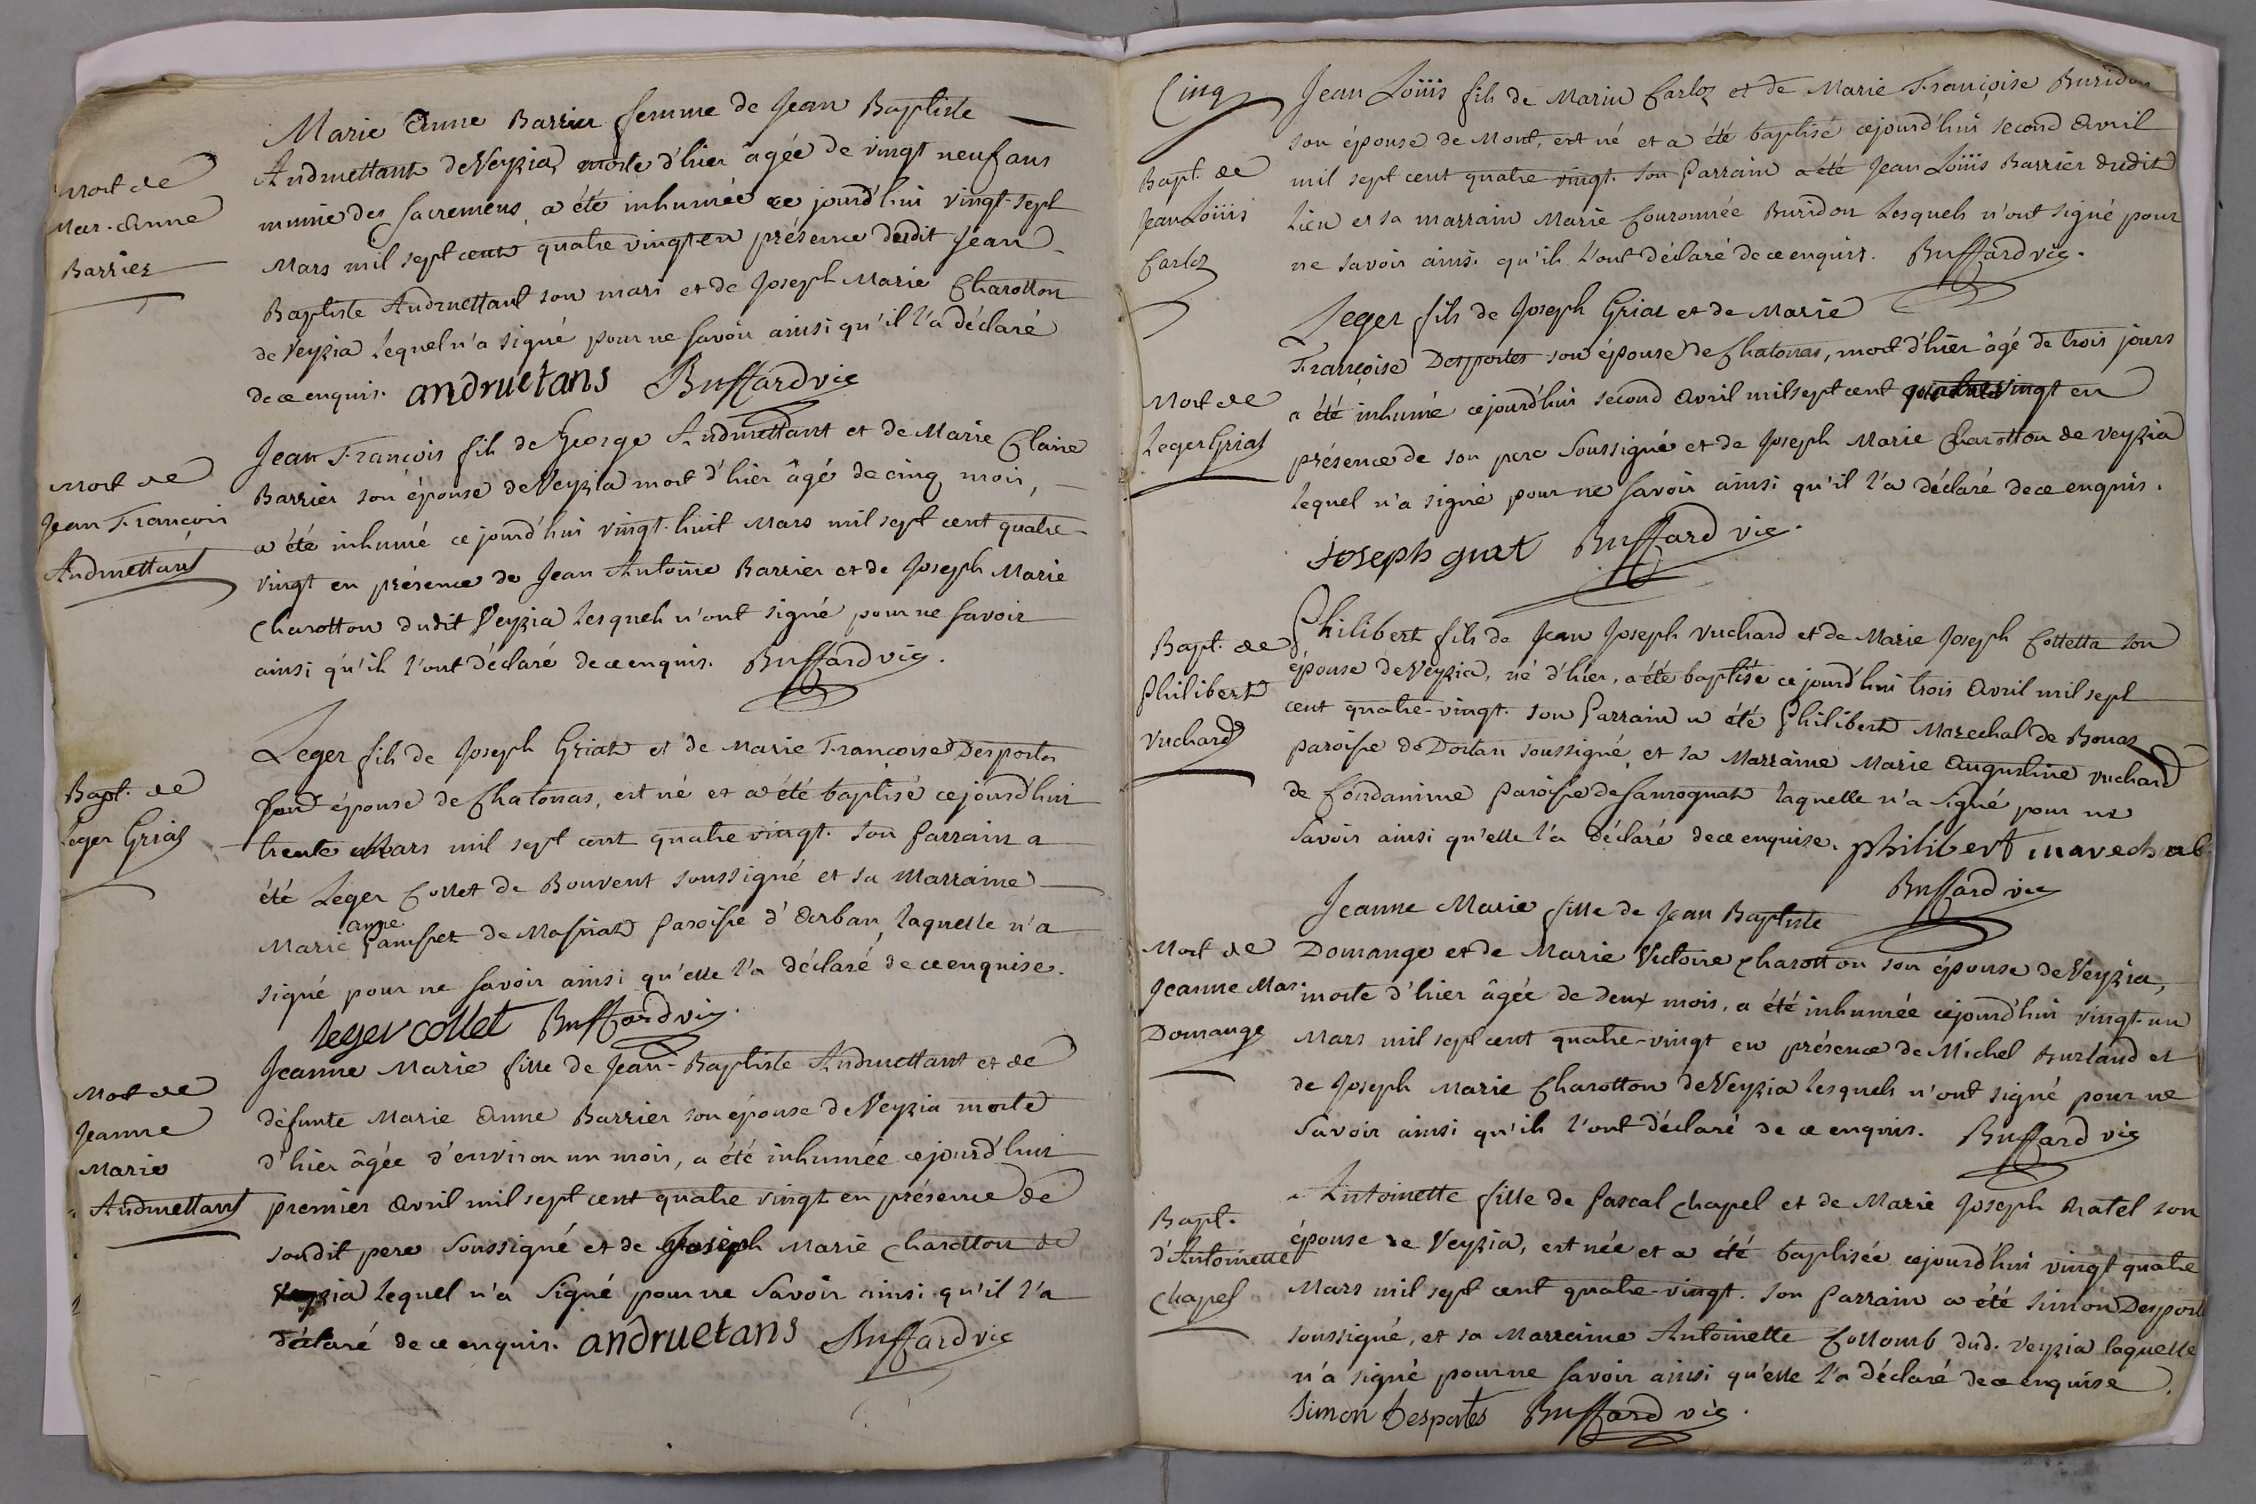 Mort de
Mar. Anne
Barrier
Marie Anne Barrier femme de Jean Baptiste
Andruettant de Veyzia, morte d'hier âgée de vingt neuf ans
munie des sacremens, a été inhumée ce jourd'hui vingt-sept
Mars mil sept cent quatre vingt en présence dudit Jean
Baptiste Andruettant son mari et de Joseph Marie Charotton
de Veyzia lequel n'a signé pour ne savoir ainsi qu'il l'a déclaré
de ce enquis. andruetans Buffard vic
Mort de
Jean François
Andruettant
Jean-François fils de George Andruettant et de Marie Claire
Barrier son épouse de Veyzia mort d'hier âgé de cinq mois,
a été inhumé ce jourd'hui vingt-huit Mars mil sept cent quatre
vingt en présence de Jean Antoine Barrier et de Joseph Marie
Charotton dudit Veyzia lesquels n'ont signé pour ne savoir
ainsi qu'ils l'ont déclaré de ce enquis. Buffard vic.
Bapt. de
Leger Griat
Leger fils de Joseph Griat et de Marie Françoise Desportes
son épouse de Chatonas, est né et a été baptisé ce jourd'hui
trente Mars mil sept cent quatre vingt. son Parrain a
été Leger Collet de Bouvent soussigné et sa Marraine
anne
Marie de Massiat Paroisse d'Arban, laquelle n'a
signé pour ne savoir ainsi qu'elle l'a déclaré de ce enquise.
leger collet Buffard vic.
Mort de
Jeanne
Marie
Andruettant
Jeanne Marie fille de Jean-Baptiste Andruettant et de
défunte Marie Anne Barrier son épouse de Veyzia morte
d'hier âgée d'environ un mois, a été inhumée ce jourd'hui
premier Avril mil sept cent quatre vingt en présence de
sondit pere soussigné et de Joseph Marie Charotton de
Veyzia lequel n'a signé pour ne savoir ainsi qu'il l'a
déclaré de ce enquis. andruetans Buffard vic
Cinq
Bapt. de
Jean Loüis
Carloz
Jean Loüis fils de Marin Carloz et de Marie Françoise Buridon
son épouse de Mont, est né et a été baptisé cejourd'hui second Avril
mil sept cent quatre vingt. son Parrain a été Jean Loüis Barrier dudit
Lieu et sa marrain Marie Couronnée Buridon lesquels n'ont signé pour
ne savoir ainsi qu'ils l'ont déclaré de ce enquis. Buffard vic.
Mort de
Leger Griat
Leger fils de Joseph Griat et de Marie
Françoise Desportes son épouse de Chatonas, mort d'hier âgé de trois jours
a été inhumé cejourd'hui second Avril mil sept cent quatre vingt en
présence de son pere soussigné et de Joseph Marie Charotton de veyzia
lequel n'a signé pour ne savoir ainsi qu'il l'a déclaré de ce enquis.
Joseph griat Buffard vic.
Bapt. de
Philibert
Vuchard
Philibert fils de Jean Joseph Vuchard et de Marie Joseph Colletta son
épouse de Veyzia, né d'hier, a été baptisé ce jourd'hui trois Avril mil sept
cent quatre-vingt. son Parrain a été Philibert Marechal de Bonaz
paroisse de Dortan soussigné, et sa Marraine Marie Augustine vuchard
de Condamine Paroisse de Samognat laquelle n'a signé pour ne
savoir ainsi qu'elle l'a déclaré de ce enquise. philibert marechal
Buffard vic
Mort de
Jeanne Mar.
Domange
Jeanne Marie fille de Jean Baptiste
Domange et de Marie Victoire Charotton son épouse de Veyzia,
morte d'hier âgée de deux mois, a été inhumée cejourd'hui vingt-un
Mars mil sept cent quatre-vingt en présence de Michel Burland et
de Joseph Marie Charotton de Veyzia lesquels n'ont signé pour ne
savoir ainsi qu'ils l'ont déclaré de ce enquis. Buffard vic
Bapt.
d'Antoinette
Chapel
Antoinette fille de Pascal Chapel et de Marie Joseph Ratel son
épouse de Veyzia, est née et a été baptisée cejourd'hui vingt quatre
Mars mil sept cent quatre-vingt. son Parrain a été Simon Desport
soussigné, et sa Marraine Antoinette Collomb dud. Veyzia laquelle
n'a signé pour ne savoir ainsi qu'elle l'a déclaré de ce enquise.
Simon Desportes Buffard vic.